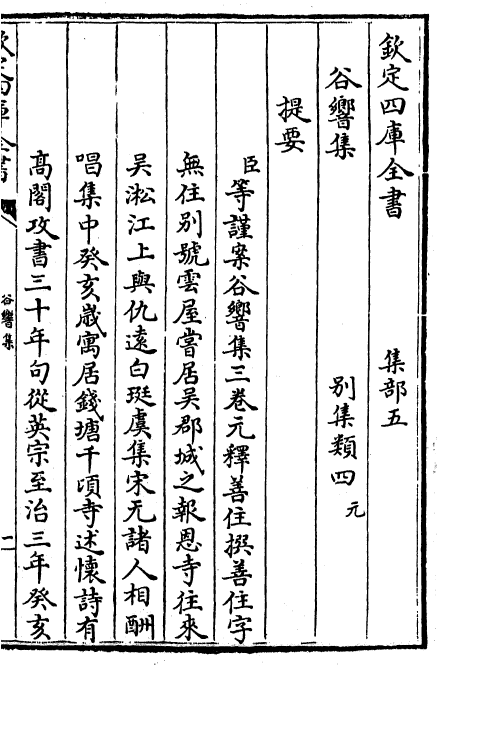 欽定四庫全書　集部五
谷響集　別集類四元
提要
臣等謹案谷響集三卷元釋善住撰善住字
無住別號雲屋嘗居吳郡城之報恩寺往來
吳淞江上與仇遠白珽虞集宋无諸人相酬
唱集中癸亥嵗寓居錢塘千頃寺述懷詩有
髙閣攻書三十年句從英宗至治三年癸亥
欽定四庫全書
谷響集
一